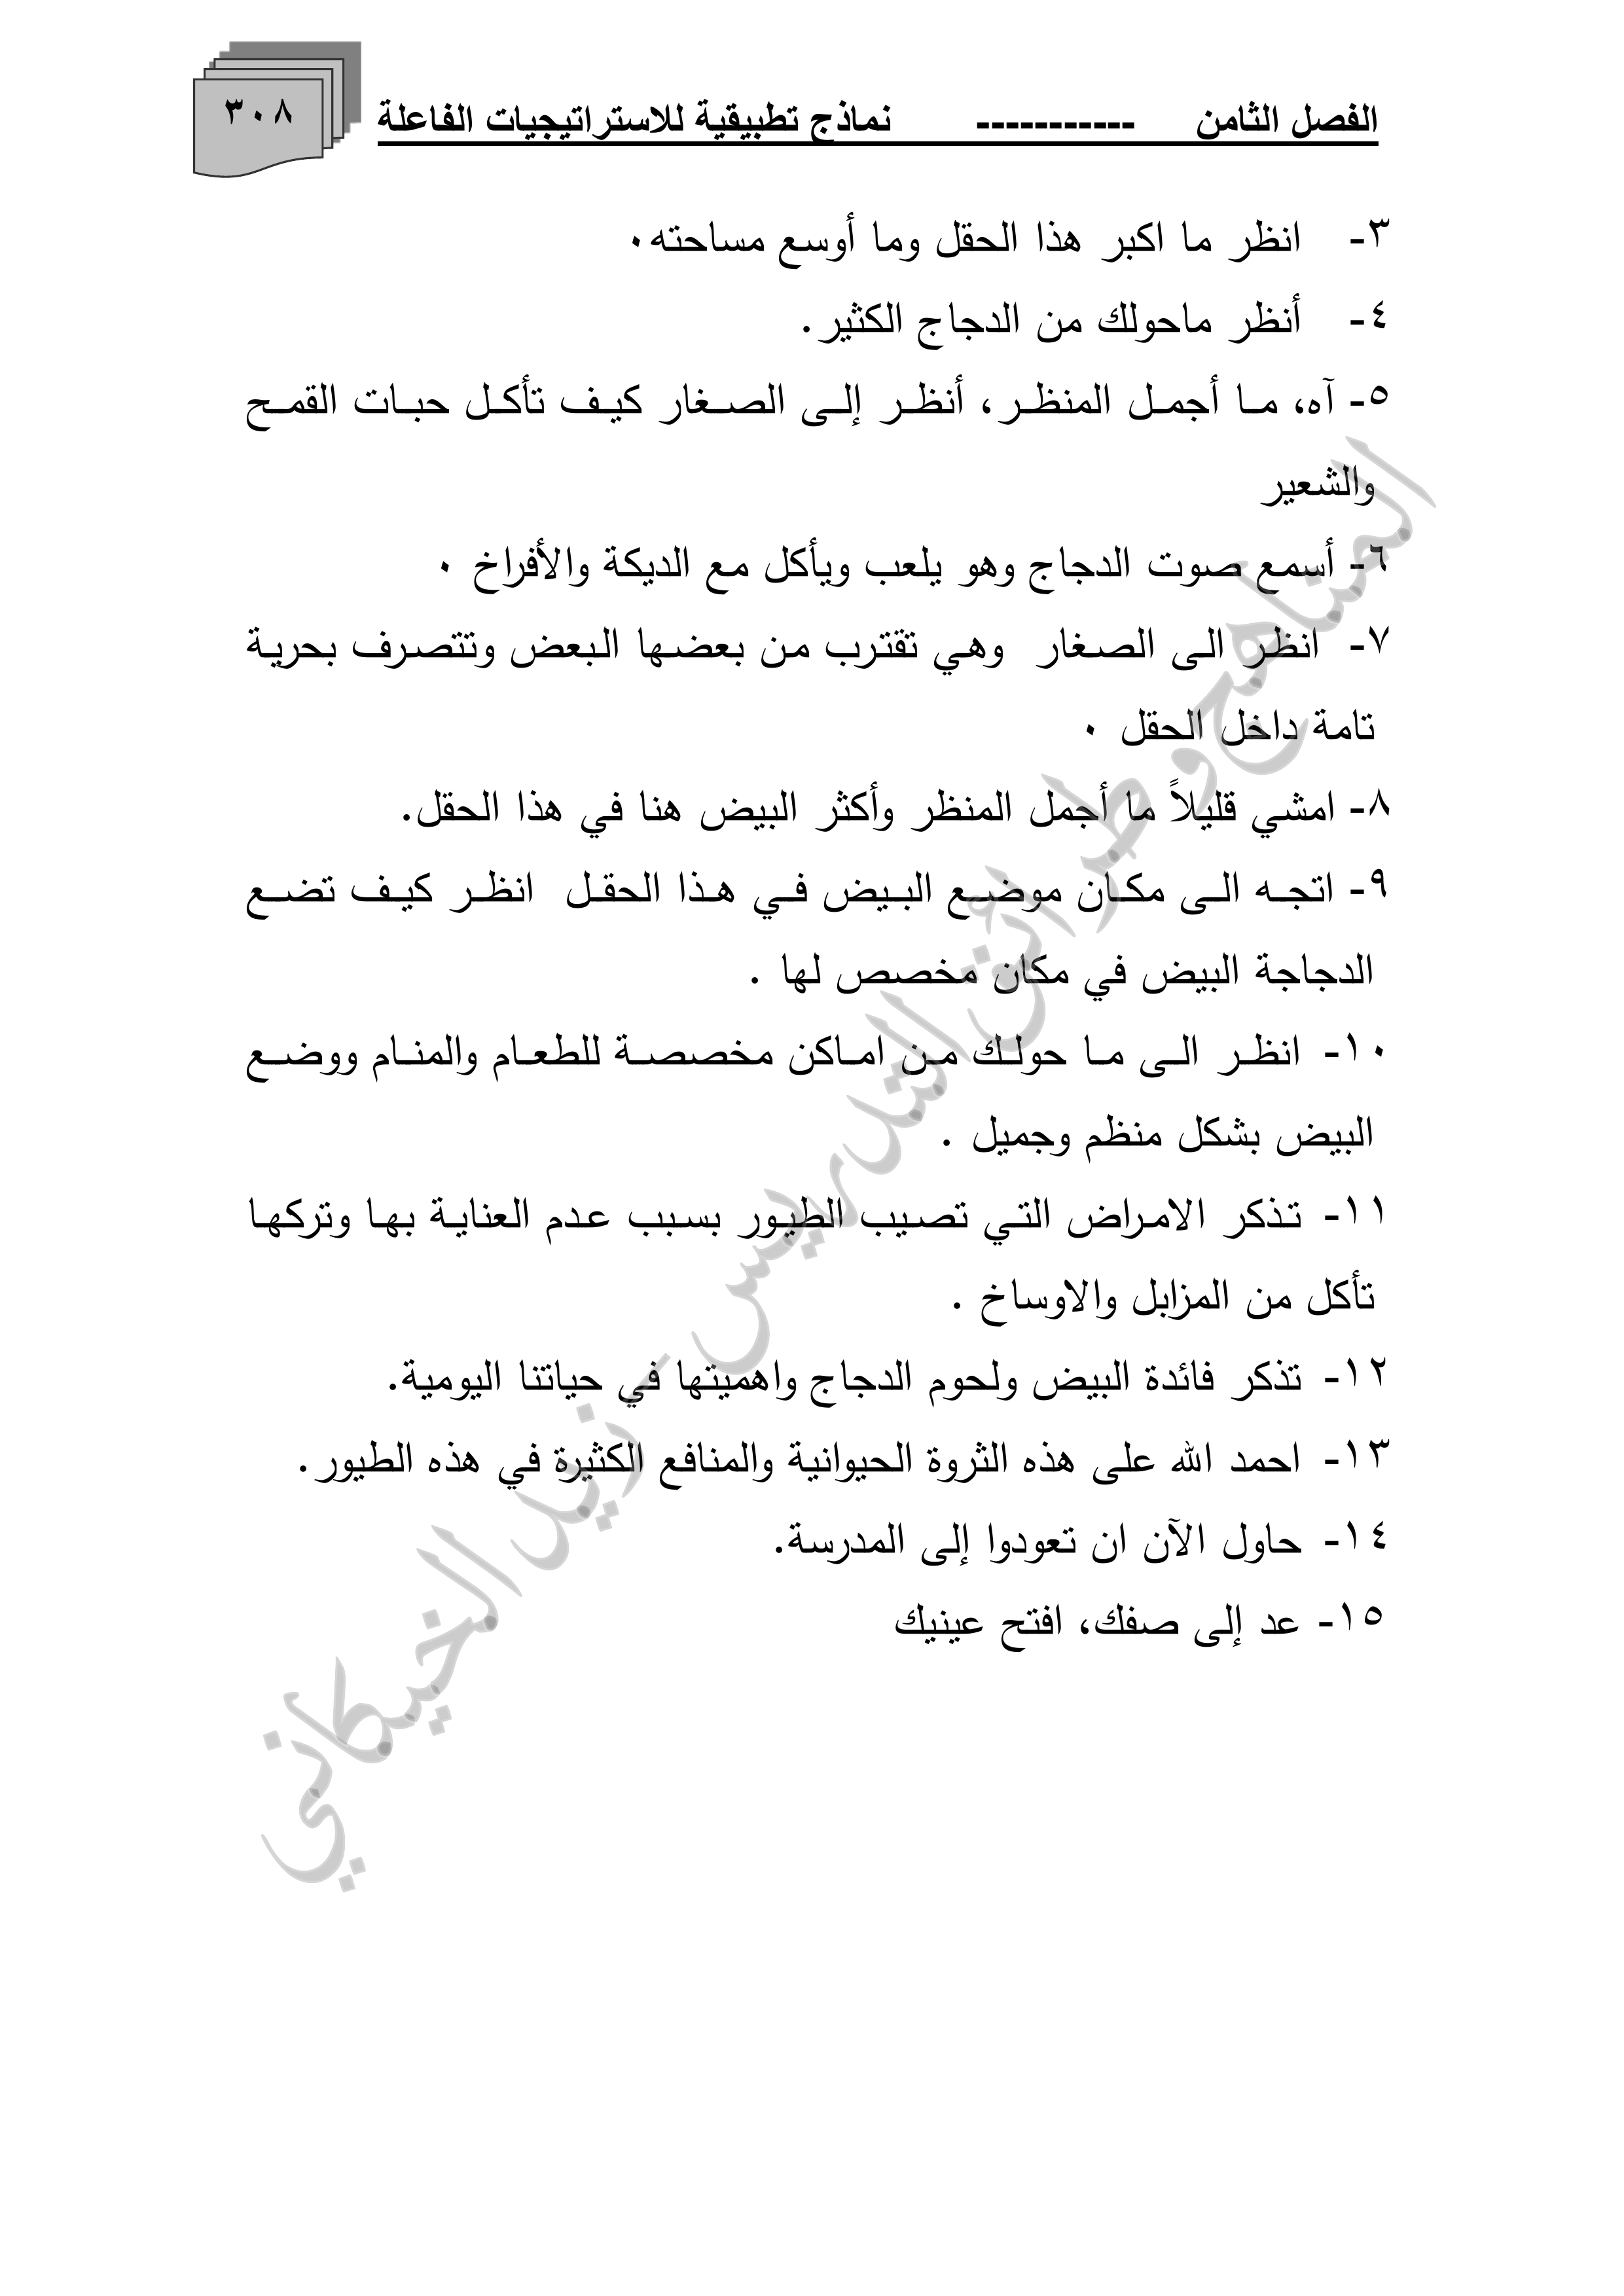 الفصل الثامن ----------- نماذج تطبيقية للاستراتيجيات الفاعلة
٣٠٨
٣- انظر ما اكبر هذا الحقل وما أوسع مساحته٠
٤- أنظر ماحولك من الدجاج الكثير.
٥- آه، ما أجمل المنظر، أنظر إلى الصغار كيف تأكل حبات القمح
والشعير
٦- أسمع صوت الدجاج وهو يلعب ويأكل مع الديكة والأفراخ ٠
٧- انظر الى الصغار وهي تقترب من بعضها البعض وتتصرف بحرية
تامة داخل الحقل ٠
٨- امشي قليلاً ما أجمل المنظر وأكثر البيض هنا في هذا الحقل.
٩- اتجه الى مكان موضع البيض في هذا الحقل انظر كيف تضع
الدجاجة البيض في مكان مخصص لها .
١٠- انظر الى ما حولك من اماكن مخصصة للطعام والمنام ووضع
البيض بشكل منظم وجميل .
١١- تذكر الامراض التي تصيب الطيور بسبب عدم العناية بها وتركها
تأكل من المزابل والاوساخ .
١٢- تذكر فائدة البيض ولحوم الدجاج واهميتها في حياتنا اليومية.
١٣- احمد الله على هذه الثروة الحيوانية والمنافع الكثيرة في هذه الطيور.
١٤- حاول الآن ان تعودوا إلى المدرسة.
١٥- عد إلى صفك، افتح عينيك
المناهج وطرائق التدريس - نبيل الخيكاني